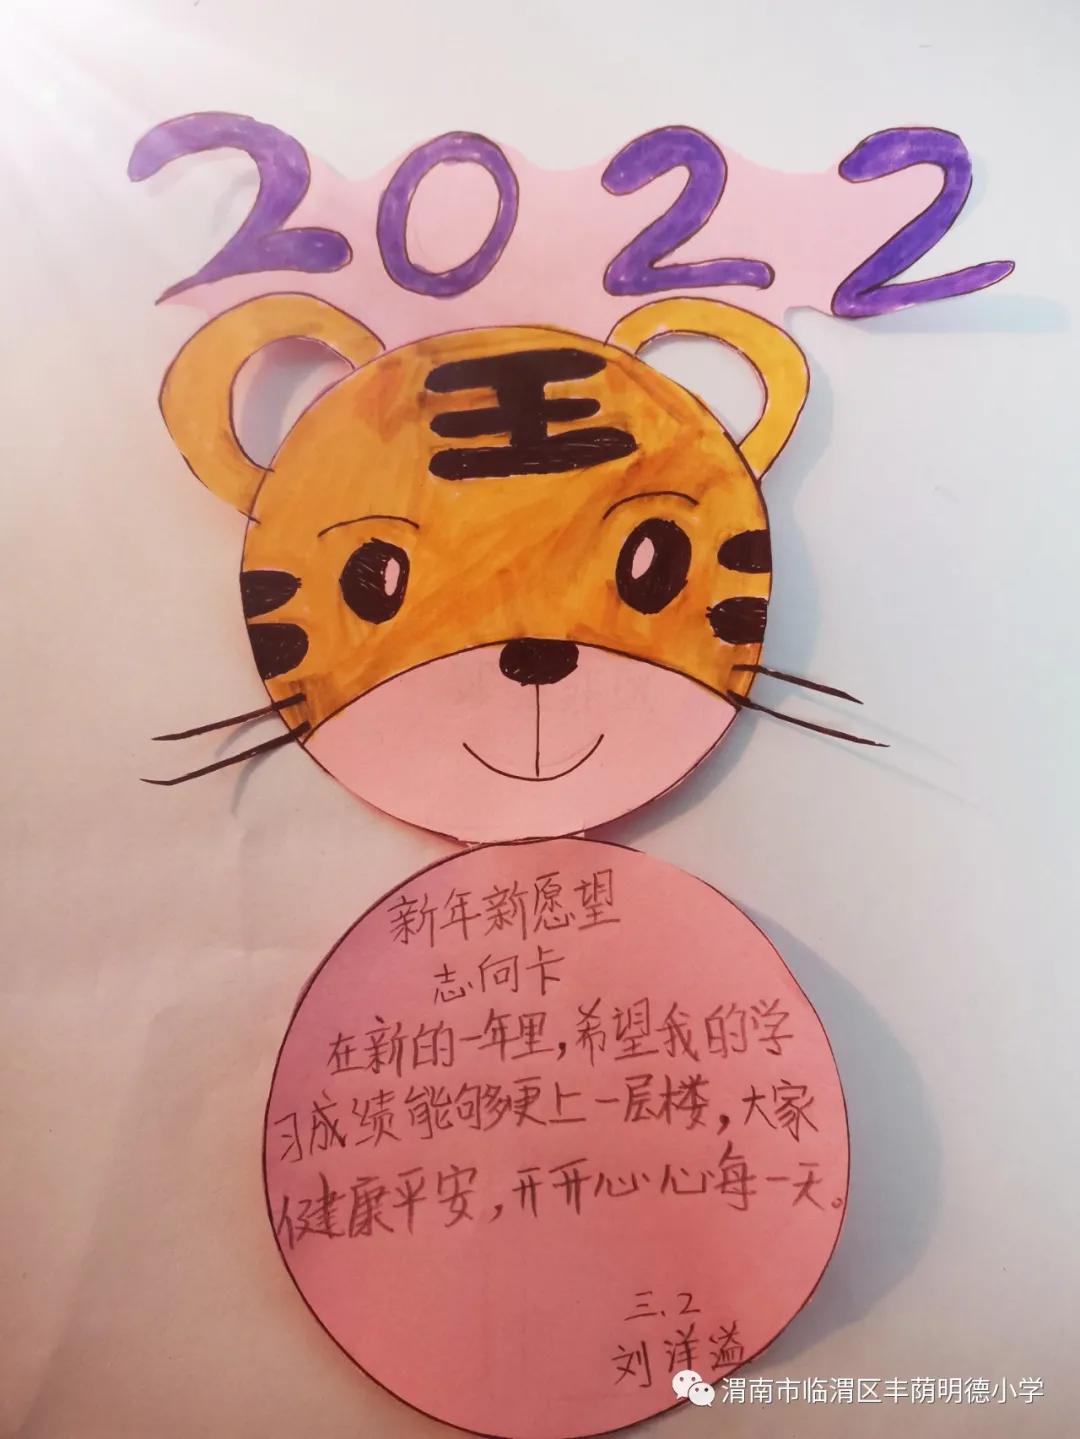 2022
王
新年新愿望
志向卡
在新的一年里，希望我的学
习成绩能够更上一层楼，大家
健康平安，开开心心每一天。
三.2
刘洋溢
渭南市临渭区丰荫明德小学